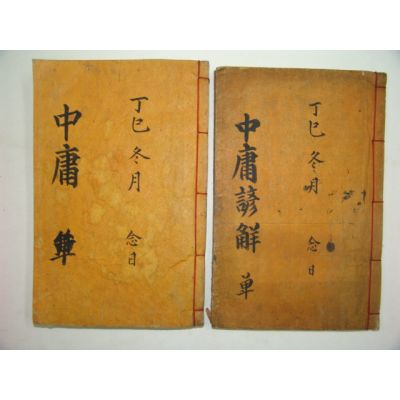 丁巳 冬月 念日
中庸諺解 単
丁巳 冬月 念日
中庸 單